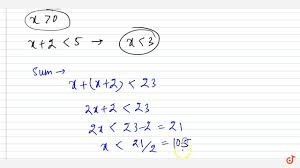 x > 0
x + 2 < 5 → x < 3
Sum →
x + (x + 2) < 23
2x + 2 < 23
2x < 23 - 2 = 21
x < 21/2 = 10.5